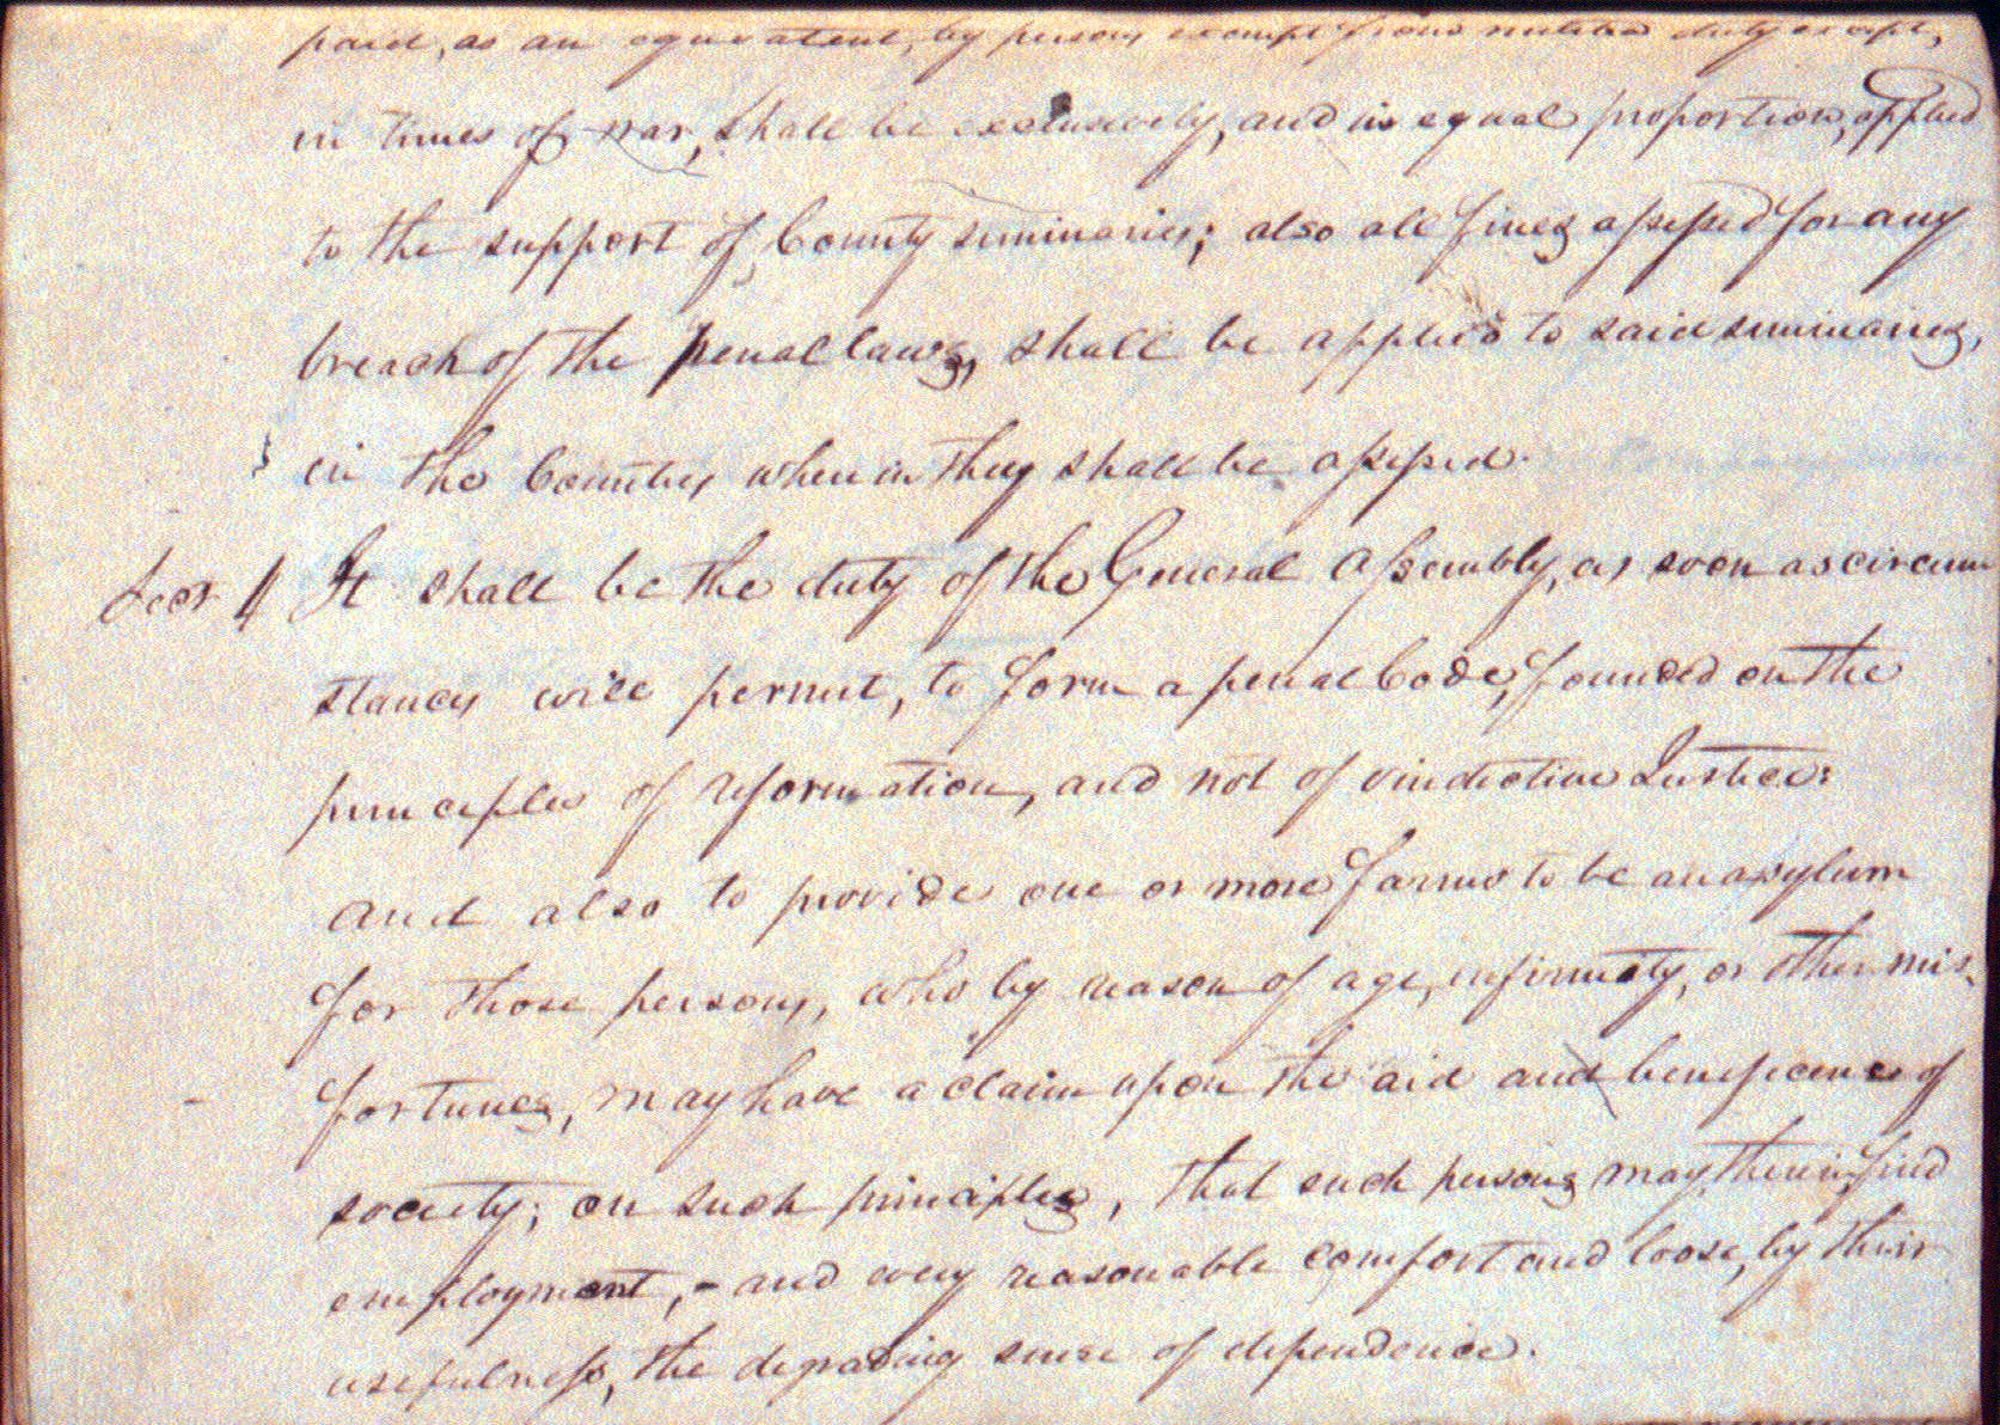 paid, as an equivalent, by persons exempt from militia duty except,
in times of war, shall be exclusively, and in equal proportion, applied
to the support of County seminaries; also all fines assessed for any
breach of the penal laws, shall be applied to said seminaries,
in the Counties wherein they shall be assessed.
Sect 4 It shall be the duty of the General Assembly, as soon as circum
stances will permit, to form a penal Code, founded on the
principles of reformation, and not of vindictive Justice:
and also to provide one or more farms to be an asylum
for those persons, who by reason of age, infirmity, or other mis-
fortunes, may have a claim upon the aid and beneficence of
society; on such principles, that such persons may, therein, find
employment, - and every reasonable comfort and loose, by their
usefulness, the degrading sense of dependence.